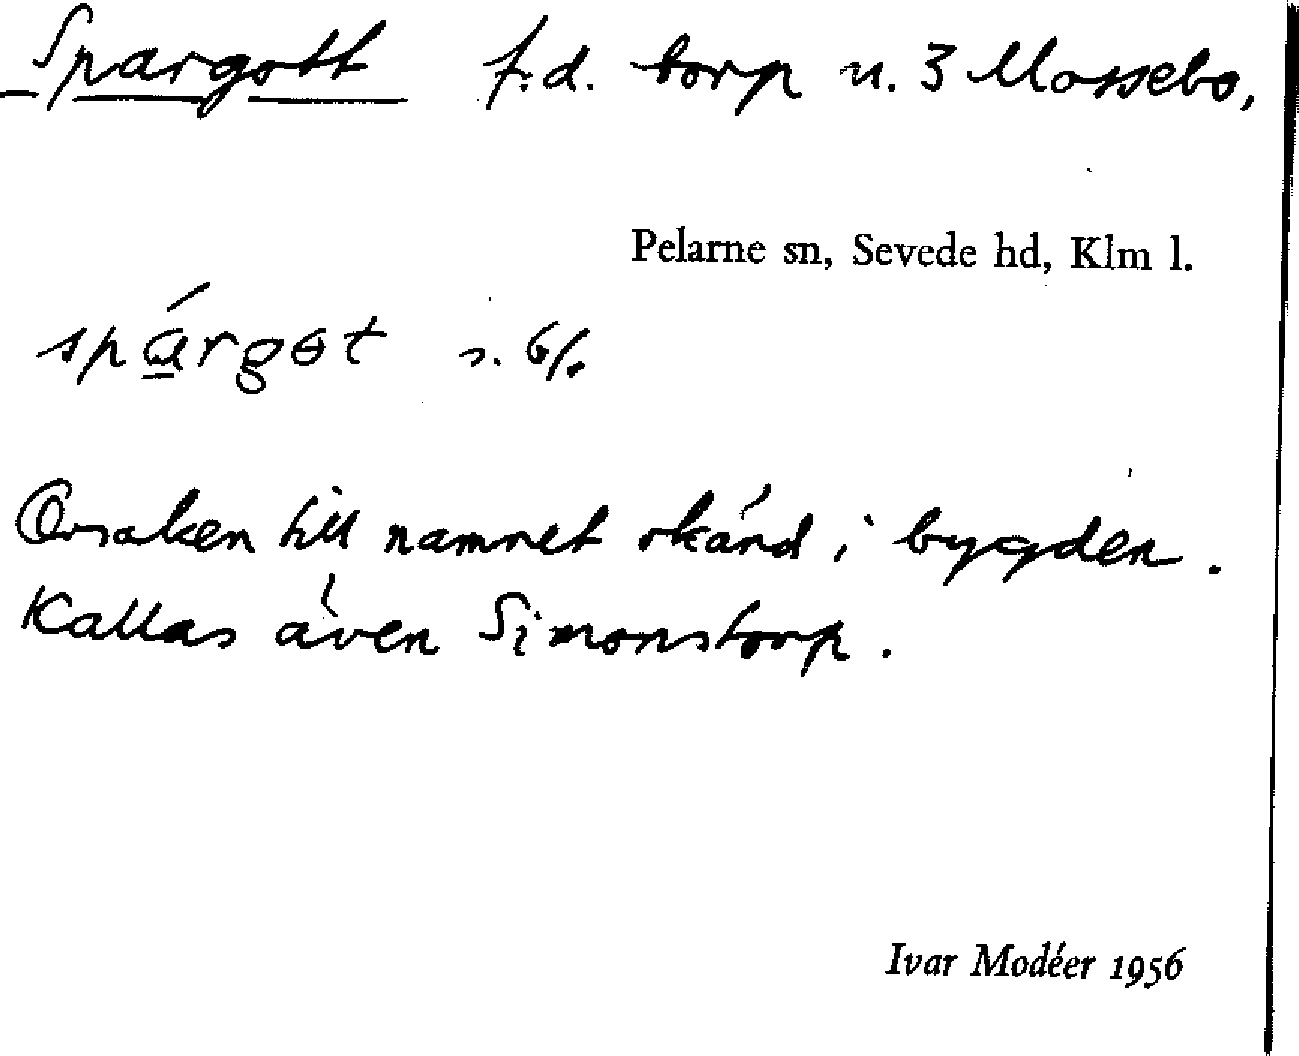 Spargott f.d. torp u. 3 Mossebo,
Pelarne sn, Sevede hd, Klm l.
spárgɵt
Orsaken till namnet okänd i bygden.
Kallas även Simonstorp.
Ivar Modéer 1956